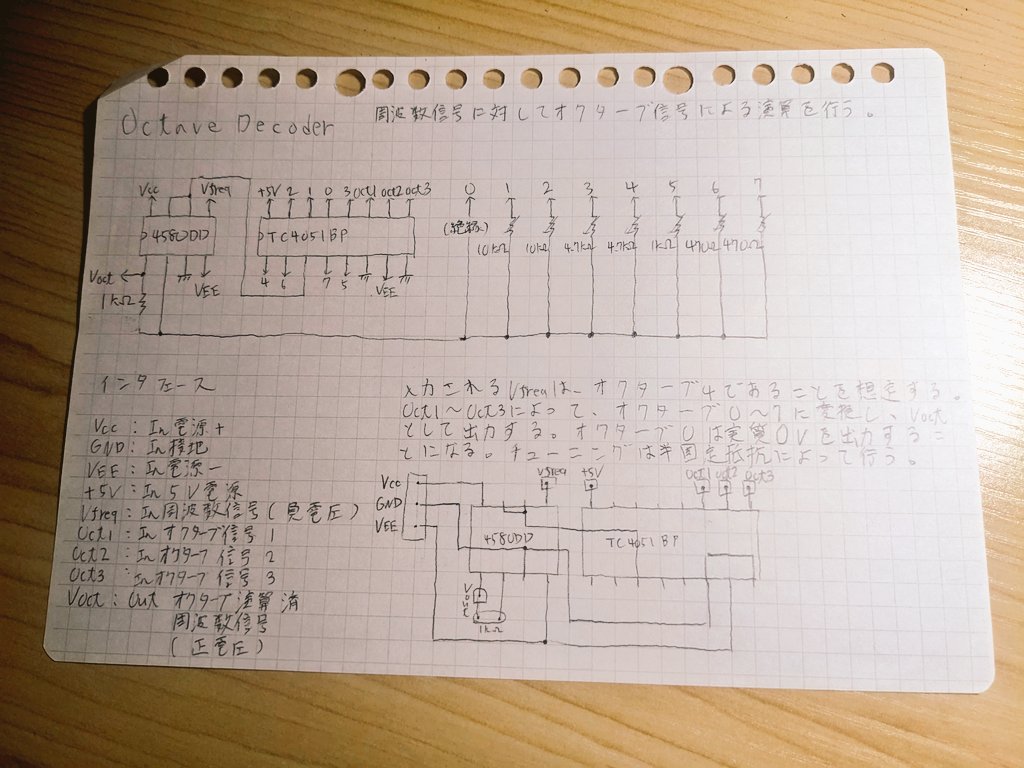 Octave Decoder
周波数信号に対してオクターブ信号による演算を行う。
Vcc Vfreq +5V 2 1 0 3 Oct1 Oct2 Oct3 0 1 2 3 4 5 6 7
4580DD TC4051BP (絶縁) 10kΩ 10kΩ 4.7kΩ 4.7kΩ 1kΩ 470Ω 470Ω
Voct VEE 4 6 7 5 VEE
1kΩ
インタフェース
Vcc : In 電源+
GND : In 接地
VEE : In 電源−
+5V : In 5V電源
Vfreq : In 周波数信号(負電圧)
Oct1 : In オクターブ信号 1
Oct2 : In オクターブ信号 2
Oct3 : In オクターブ信号 3
Voct : Out オクターブ演算済
周波数信号
(正電圧)
入力されるVfreqは、オクターブ4であることを想定する。
Oct1〜Oct3によって、オクターブ0〜7に変換し、Voct
として出力する。オクターブ0は実質0Vを出力するこ
とになる。チューニングは半固定抵抗によって行う。
Vcc Vfreq +5V Oct1 Oct2 Oct3
GND
VEE 4580DD TC4051BP
Vout
1kΩ